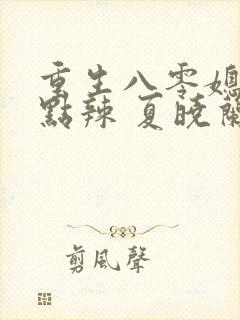 重生八零媳
點辣 夏曉蘭
剪風聲